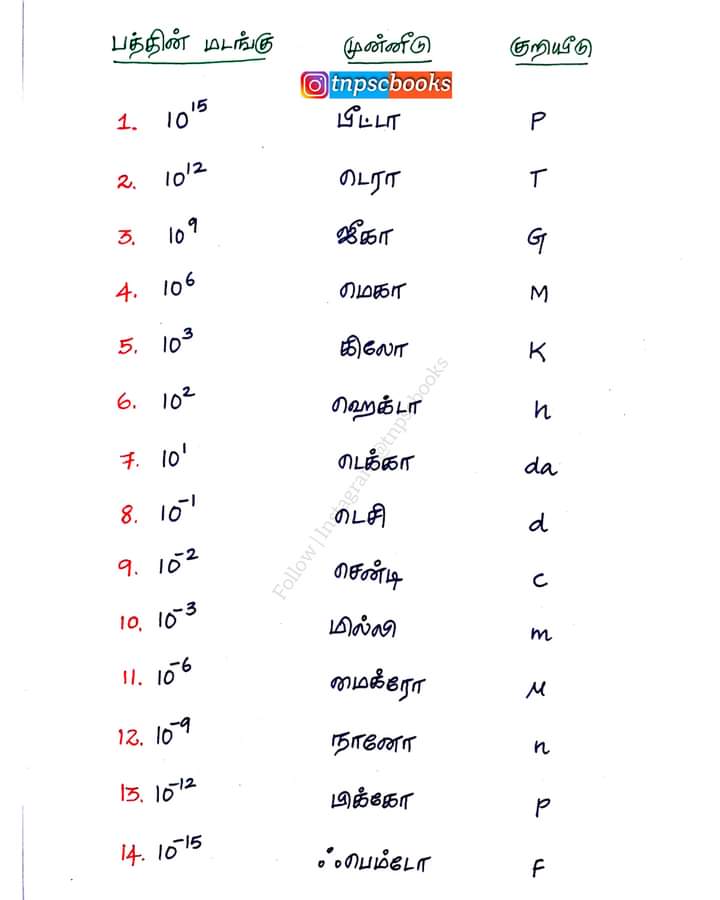 பத்தின் மடங்கு முன்னீடு குறியீடு
tnpscbooks
1. 10¹⁵ பீட்டா P
2. 10¹² டெரா T
3. 10⁹ ஜீகா G
4. 10⁶ மெகா M
5. 10³ கிலோ K
6. 10² ஹெக்டா h
7. 10¹ டெக்கா da
8. 10⁻¹ டெசி d
9. 10⁻² சென்டி c
10. 10⁻³ மில்லி m
11. 10⁻⁶ மைக்ரோ μ
12. 10⁻⁹ நானோ n
13. 10⁻¹² பிக்கோ p
14. 10⁻¹⁵ ஃபெம்டோ F
Follow | Instagram @tnpscbooks